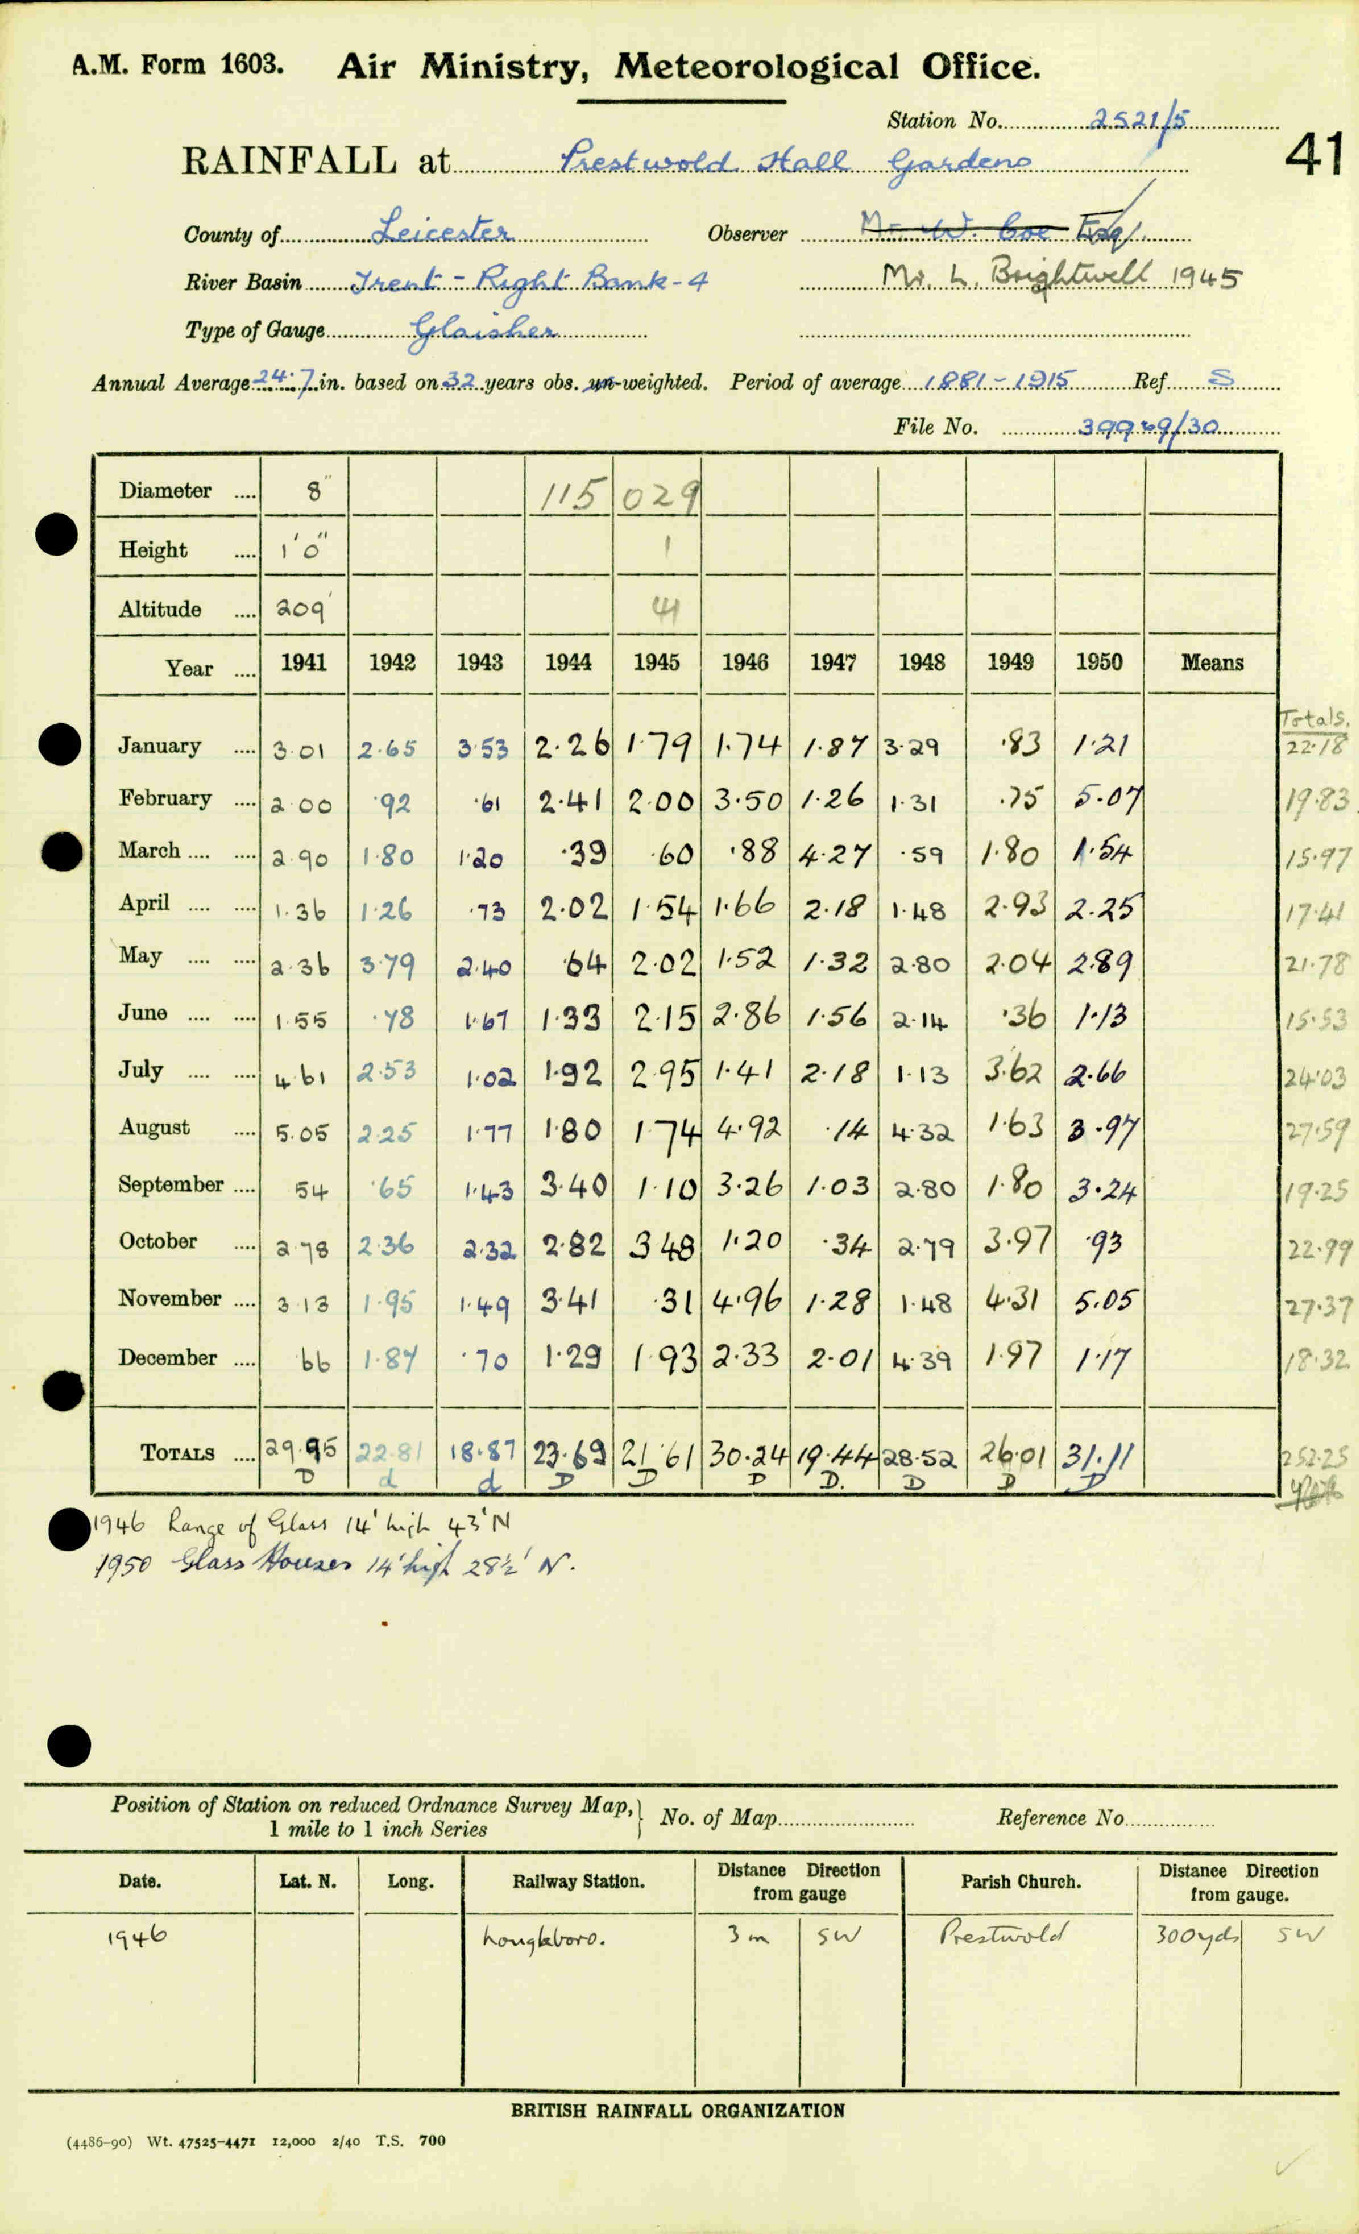 A.M. Form 1603. Air Ministry, Meteorological Office.
Station No. 2521/5
RAINFALL at Prestwold Hall Gardens 41
County of Leicester Observer Mr. W. Coe Esq.
River Basin Trent - Right Bank - 4 Mr. L. Brightwell 1945
Type of Gauge Glaisher
Annual Average 24.7 in. based on 32 years obs. un-weighted. Period of average 1881-1915 Ref S
File No.
Diameter .... 8" 115 029
Height .... 1'0" 1
Altitude .... 209' 41
Year .... 1941 1942 1943 1944 1945 1946 1947 1948 1949 1950 Means
Totals.
January .... 3.01 2.65 3.53 2.26 1.79 1.74 1.87 3.29 .83 1.21 22.18
February .... 2.00 .92 .61 2.41 2.00 3.50 1.26 1.31 .75 5.07 19.83
March .... .... 2.90 1.80 1.20 .39 .60 .88 4.27 .59 1.80 1.54 15.97
April .... .... 1.36 1.26 .73 2.02 1.54 1.66 2.18 1.48 2.93 2.25 17.41
May .... .... 2.36 3.79 2.40 .64 2.02 1.52 1.32 2.80 2.04 2.89 21.78
June .... .... 1.55 .78 1.67 1.33 2.15 2.86 1.56 2.14 .36 1.13 15.53
July .... .... 4.61 2.53 1.02 1.92 2.95 1.41 2.18 1.13 3.62 2.66 24.03
August .... 5.05 2.25 1.77 1.80 1.74 4.92 .14 4.32 1.63 3.97 27.59
September .... 54 .65 1.43 3.40 1.10 3.26 1.03 2.80 1.80 3.24 19.25
October .... 2.78 2.36 2.32 2.82 3.48 1.20 .34 2.79 3.97 .93 22.99
November .... 3.13 1.95 1.49 3.41 .31 4.96 1.28 1.48 4.31 5.05 27.37
December .... 66 1.87 .70 1.29 1.93 2.33 2.01 4.39 1.97 1.17 18.32
TOTALS .... 29.95 22.81 18.87 23.69 21.61 30.24 19.44 28.52 26.01 31.11 252.25
D d d D D D D. D D D
1946 Range of Glass 14' high 43' N
1950 Glass Houses 14' high 28½' N.
Position of Station on reduced Ordnance Survey Map, } No. of Map Reference No
1 mile to 1 inch Series
Date. Lat. N. Long. Railway Station. Distance Direction from gauge Parish Church. Distance Direction from gauge.
1946 Loughboro. 3 m SW Prestwold 300yds SW
BRITISH RAINFALL ORGANIZATION
(4486-90) Wt. 47525-4471 12,000 2/40 T.S. 700